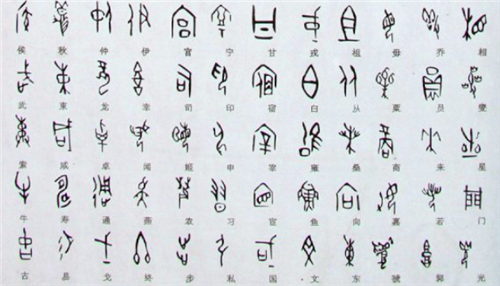 侯 秋 仲 伊 宫 宁 甘 戎 祖 毋 乔 相
武 束 龙 幸 司 印 宿 白 从 粟 员 燮
索 咸 卓 闻 姬 申 宰 雍 桑 商 来 星
牛 寿 通 燕 农 习 宣 鱼 向 嘉 若 门
古 县 戈 癸 步 私 国 文 东 虢 郭 光